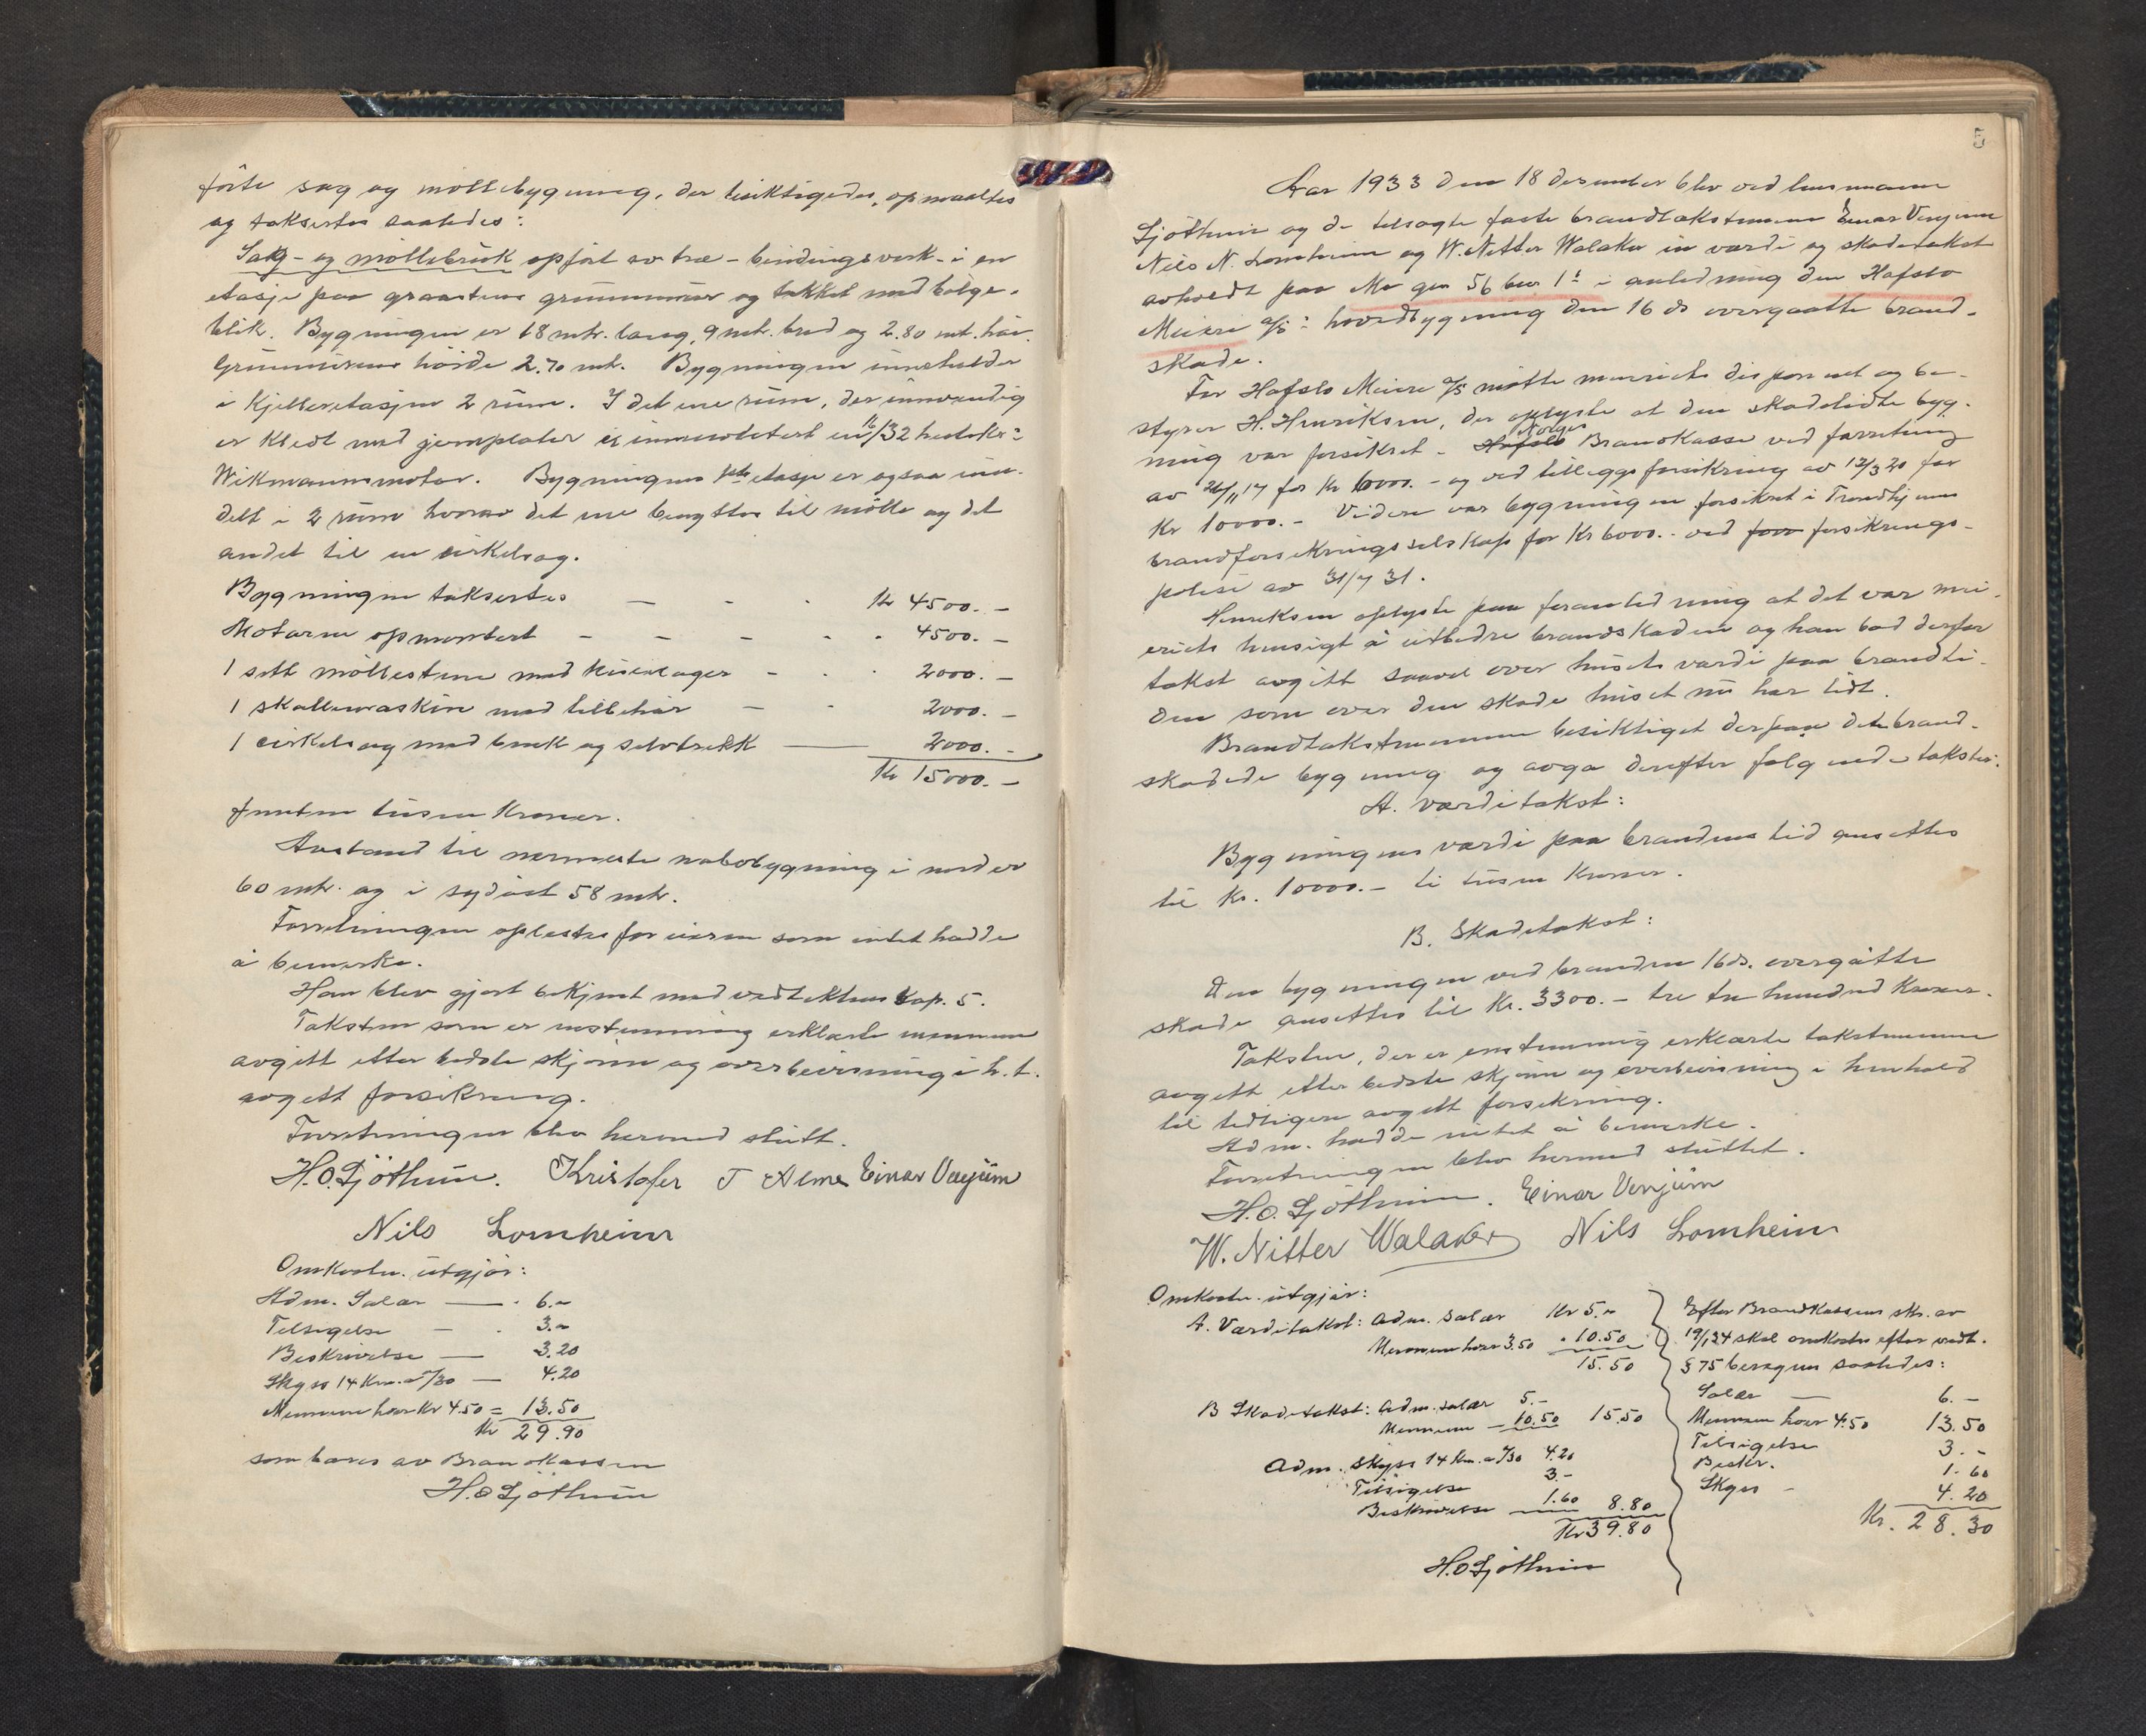 förte sag og möllebygning, der besiktigedes, opmaaltes
og taksertes saaledes:
Sag- og möllebruk opfört av træ - bindingsverk - i en
etasje paa graastens grunnmur og tækket med bölge-
blik. Bygningen er 18 mtr. lang, 9 mtr. bred og 2.80 mt. höi.
Grunmurens höide 2.70 mt. Bygningen inneholder
i Kjelleretasjen 2 rüm. I det ene rüm, der innvendig
er Kledt med jernplater er innmontert en 16/32 hestekr:
Wikmannsmotor. Bygningens 1ste etasje er ogsaa inn-
delt i 2 rüm hvorav det ene benyttes til mölle og det
andet til en cirkelsag.
Bygningen taksertes — - - Kr 4500.-
Motoren opmontert - - - - - 4500.-
1 sett möllestene med Kvernlager - - - 2000.-
1 skallemaskin med tilbehör - - 2000.-
1 cirkelsag med benk og selvtrekk — 2000.-
Kr 15000.-
femten tüsen Kroner.
Avstand til nermeste nabobygning i nord er
60 mtr. og i sydöst 58 mtr.
Forretningen oplestes for eieren som intet hadde
å bemerke.
Han blev gjort bekjent med vedtektenes Kap. 5.
Taksten som er enstemmig erklærte mennene
avgitt efter bedste skjönn og overbevisning i h. t.
avgitt forsikring.
Forretningen blev hermed slutt.
H.O. Sjöthun. Kristofer T Alme Einar Venjüm
Nils Lomheim
Omkostn. utgjör:
Adm. Salær — - 6.-
Tilsigelse - - 3.-
Beskrivelse — 3.20
Skyss 14 Km. a -/30 — 4.20
Mennene hver Kr 4.50 = 13.50
Kr 29.90
som bæres av BrandKassen
H.O Sjöthun
5
Aar 1933 den 18 desember blev ved lensmann
Sjöthun og de tilsagte faste brandtakstmenn Einar Venjum
Nils N. Lomheim og W. Nitter Walaker en værdi og skadetakst
avholdt paa Mo gnr 56 bnr 1 i anledning den Hafslo
Meieri a/s: hovedbygning den 16 ds overgaatte brand-
skade.
For Hafslo Meieri a/s mötte meieriets disponent og be-
styrer H. Henriksen, der oplyste at den skadelidte byg-
ning var forsikret i Hafslo Norges BrandKasse ved forretning
av 26/11 17 for Kr 6000.- og ved tilleggsforsikring av 12/3 20 for
Kr 10000.- Videre var bygningen forsikret i Trondhjems
brandforsikringsselskap for Kr 6000.- ved forr forsikrings-
polise av 31/7 31.
Henriksen oplyste paa foranledning at det var mei-
eriets hensigt å utbedre brandskaden og han bad derfor
takst avgitt saavel over husets værdi paa brandti-
den som over den skade huset nü har lidt.
Brandtakstmennene besiktiget derpaa den brand-
skadede bygning og avga derefter fölgende takster:
A. Værditakst:
Bygningens værdi paa brandens tid ansettes
til Kr. 10000.- ti tüsen Kroner.
B. Skadetakst:
Den bygningen ved branden 16 ds. overgåtte
skade ansettes til Kr. 3300.- tre tre hundred Kroner.
Taksten, der er enstemmig erklærte takstmennene
avgitt efter bedste skjönn og overbevisning i henhold
til tidligere avgitt forsikring.
Adm. hadde intet å bemerke.
Forretningen blev hermed sluttet.
H.O. Sjöthun. Einar Venjüm
W. Nitter Walaker Nils Lomheim
Omkostn. utgjör:
A. Værditakst: Adm. salær Kr 5.-
Mennene hver 3.50 - 10.50
15.50
B Skadetakst: Adm. salær 5.-
Mennene - 10.50 15.50
Adm. skyss 14 Km. a -/30 4.20
Tilsigelse 3.-
Beskrivelse 1.60 8.80
Kr 39.80
H.O Sjöthun
Efter BrandKassens skr. av
19/1 34 skal omkostn efter vedt.
§ 75 beregnes saaledes:
Salær — 6.-
Mennene hver 4.50 13.50
Tilsigelse 3.-
Beskr. 1.60
Skyss - 4.20
Kr. 28.30